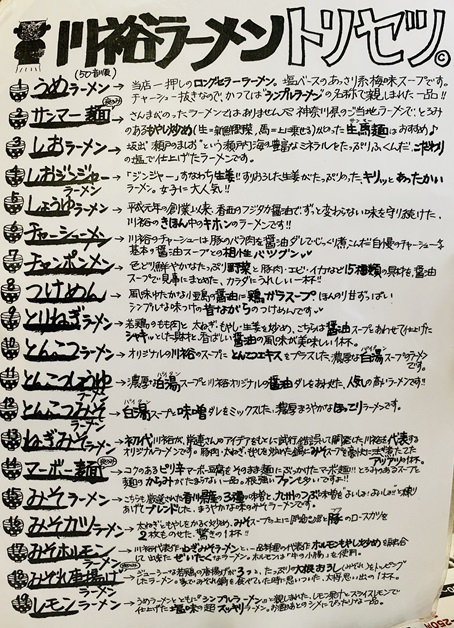 川裕ラーメントリセツ©
(50音順)
1 うめラーメン → 当店一押しのロングセラーラーメン。塩ベースのあっさり赤梅味スープです。
チャーシュー抜きなので、かつては"ランブルラーメン"の名称で親しまれた一品!!
2 サンマー麺 → さんまがのったラーメンではありません 神奈川県のご当地ラーメンで、とろみ
のあるもやし炒め(生=新鮮 馬=上に乗せる)がのった生馬麺はおすすめ♪
3 しおラーメン → 「瀬戸のましお」という瀬戸内海の豊富なミネラルをたっぷりふくんだ、こだわり
の塩で仕上げたラーメンです。
4 しおジンジャーラーメン → 「ジンジャー」すなわち生姜!!すりおろした生姜がたっぷり入った、キリッとあったかい
ラーメン。女子に大人気!!
5 しょうゆラーメン → 平成元年の創業以来、香西のフジタカ醤油で、ずっと変わらない味を守り続けた、
川裕のきほん中のキホンのラーメンです!!
6 チャーシューメン → 川裕のチャーシューは豚のバラ肉を醤油ダレでじっくり煮こんだ自慢のチャーシュー
基本の醤油スープとの相性バツグン
7 チャンポンメン → 色どり鮮やかなたっぷり野菜と豚肉・エビ・イカなど15種類の具材を、醤油
スープで見事にまとめた、カラダにうれしい一杯!!
8 つけめん → 風味ゆたかな小豆島の醤油に鶏ガラスープ ほんのり甘ずっぱい
シンプルな味つけの昔ながらのつけめんです
9 とりねぎラーメン → 若鶏のもも肉と太ねぎ、もやし、生姜を炒め、こちらは醤油スープをあわせて仕上げた
シャキッとした具材と、香ばしい醤油の風味が美味しい一杯。
10 とんこつラーメン → オリジナルの川裕のスープにとんこつエキスをプラスした、濃厚な白湯スープのラーメン
です。
11 とんこつしょうゆラーメン → 濃厚な白湯スープと川裕オリジナルの醤油ダレをあわせた、人気の高いラーメンです!!
12 とんこつみそラーメン → 白湯スープに味噌ダレをミックスした、濃厚まろやかなほっこりラーメンです。
13 ねぎみそラーメン → 初代川裕が、常連さんのアイデアをもとに試行錯誤して開発した川裕を代表する
オリジナルラーメンです。豚肉・太ねぎ・
14 マーボー麺 → コクのあるピリ辛マーボー豆腐をそのまま麺にぶっかけたマーボ麺!!とろみあるスープと
麺のからみがたまらない一品。根強いファン多いです!!
15 みそラーメン → こちらも厳選された香川県の3種の味噌と、九州のつぶ味噌を
ブレンドした、まろやかな味のみそラーメンです。
16 みそカツラーメン → 太ねぎともやしをかるく炒め、みそスープの上に 豚のロースカツを
2枚ものせた、驚きの1杯!!
17 みそホルモンラーメン → 川裕代表作・ねぎみそラーメンと一品料理の代表作ホルモンもやし炒めを融合
して出来た ぜいたくなラーメン。ホルモンは「牛の小腸」を使用。
18 みぞれ唐揚げラーメン → ジューシーな若鶏の唐揚げが3つと、たっぷり大根おろし(みぞれ)をトッピング
したラーメン。 みぞれ鍋を食べていた時に思いついた、大将思い出の1杯。
19 レモンラーメン → うめラーメンとともに"シンブルラーメン"と親しまれた、レモン果汁とスライスレモンで
仕上げた塩味の超スッキリラーメン。お酒のあとのシメにぴったりな一品。
250円